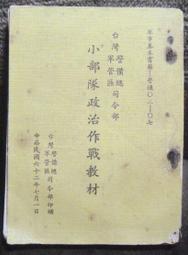 軍事基本書籍:警備〇二-〇七
台灣警備總司令部
軍管區
小部隊政治作戰教材
台灣警備總司令部印頒
軍管區
中華民國六十二年七月一日